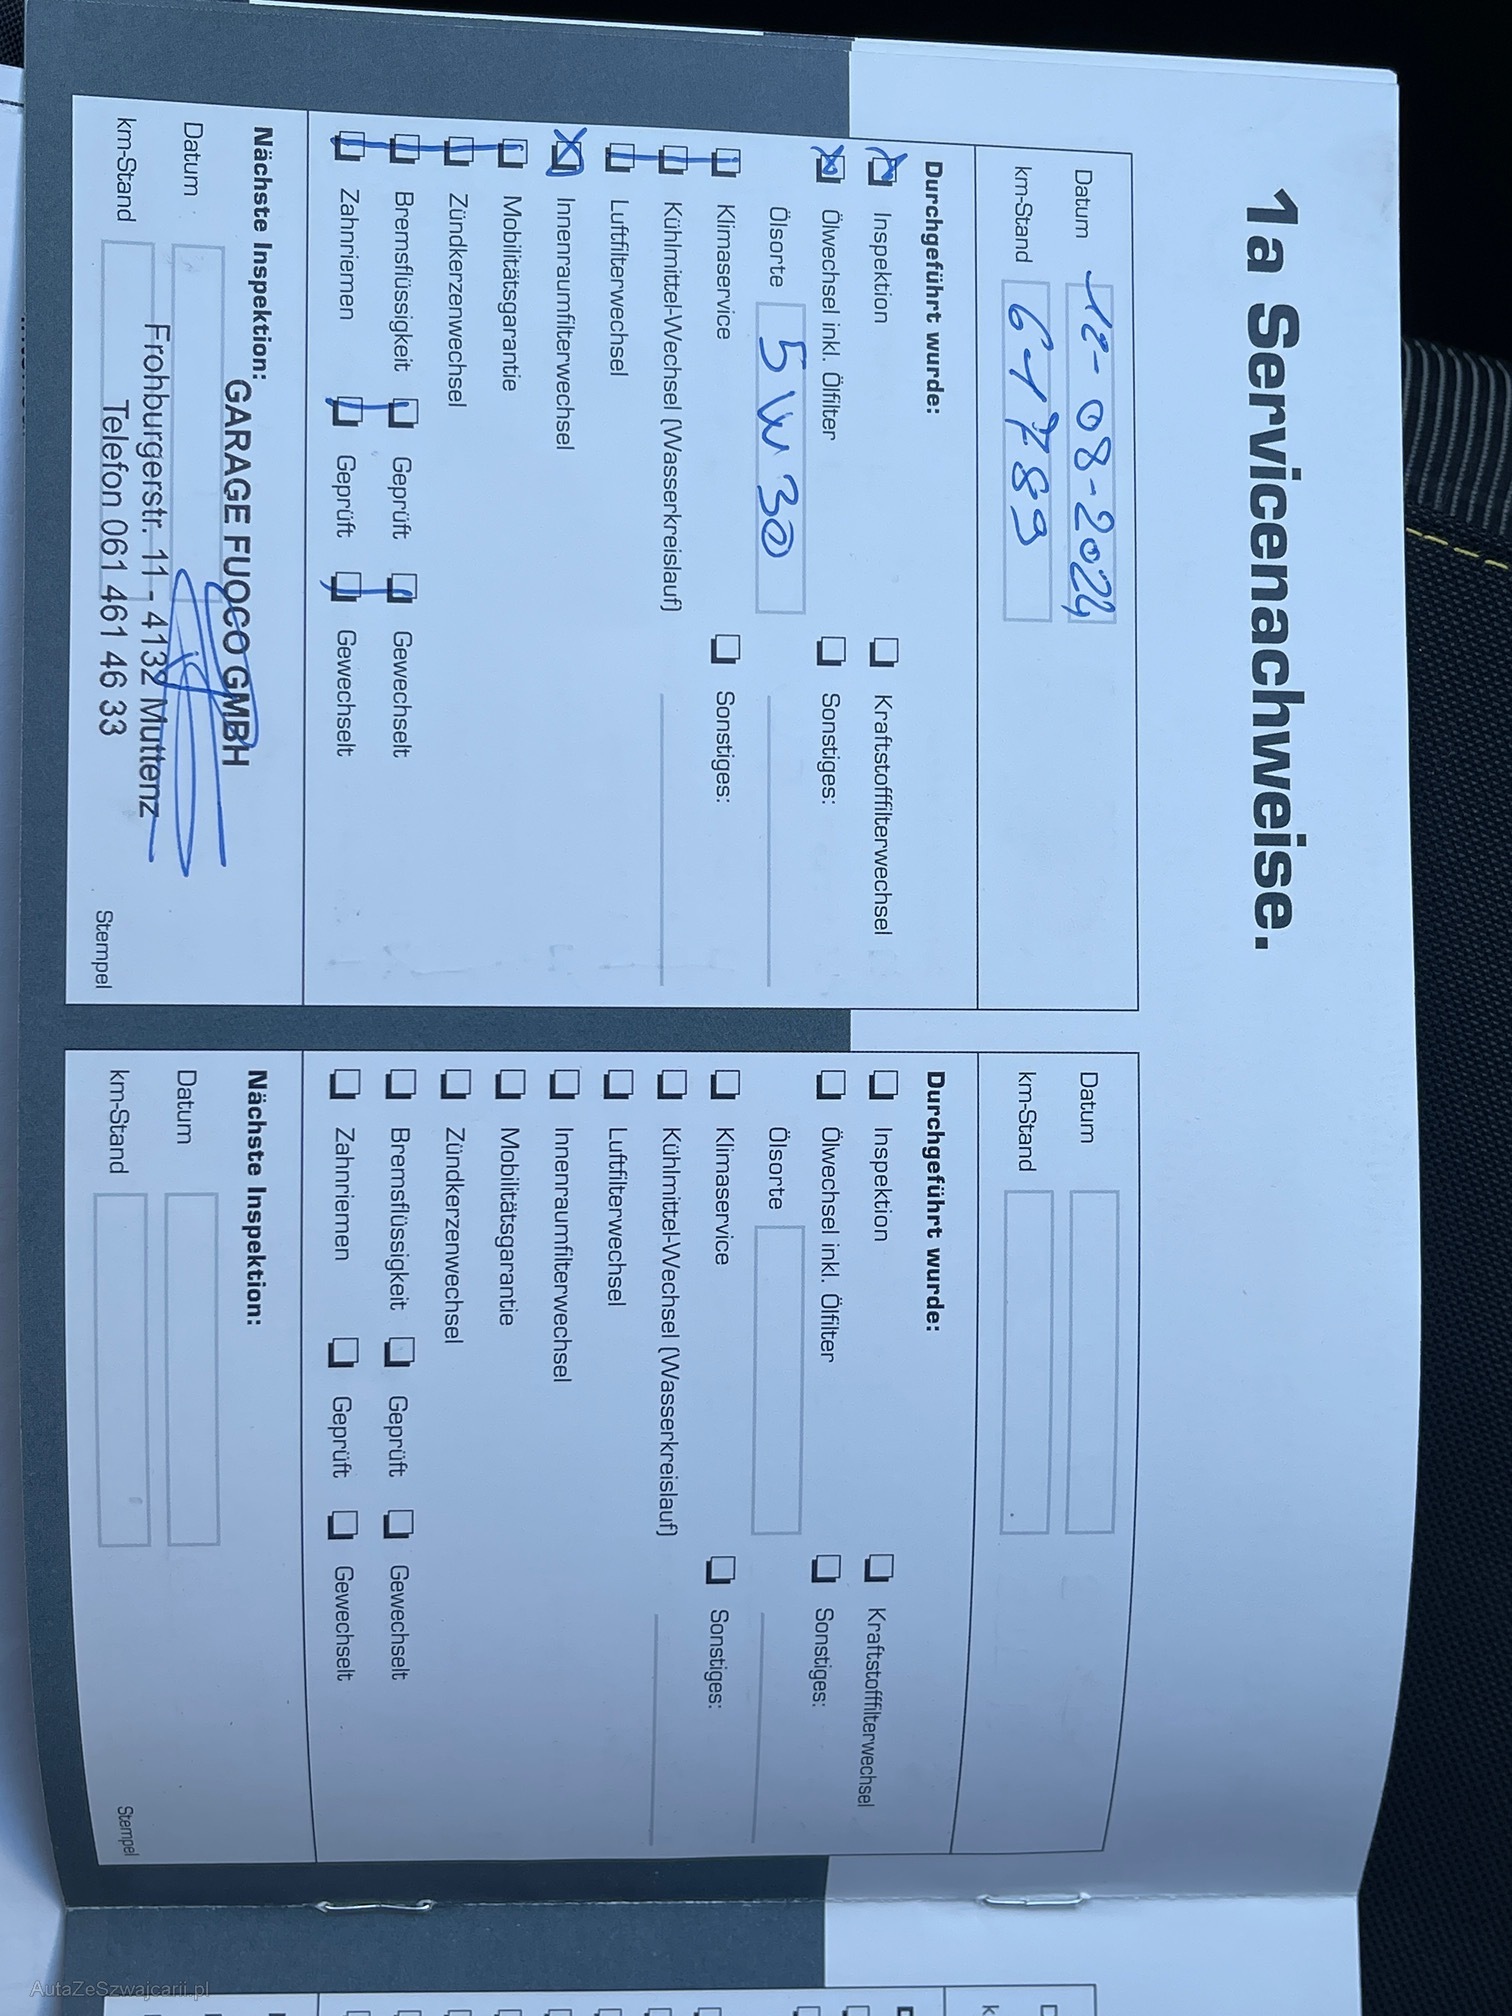 1a Servicenachweise.
Datum 12-08-2024
km-Stand 61789
Durchgeführt wurde:
Inspektion Kraftstofffilterwechsel
Ölwechsel inkl. Ölfilter Sonstiges:
Ölsorte 5W30
Klimaservice Sonstiges:
Kühlmittel-Wechsel (Wasserkreislauf)
Luftfilterwechsel
Innenraumfilterwechsel
Mobilitätsgarantie
Zündkerzenwechsel
Bremsflüssigkeit Geprüft Gewechselt
Zahnriemen Geprüft Gewechselt
Nächste Inspektion:
GARAGE FUOCO GMBH
Datum
Frohburgerstr. 11 - 4132 Muttenz
km-Stand
Telefon 061 461 46 33
Stempel
Datum
km-Stand
Durchgeführt wurde:
Inspektion Kraftstofffilterwechsel
Ölwechsel inkl. Ölfilter Sonstiges:
Ölsorte
Klimaservice Sonstiges:
Kühlmittel-Wechsel (Wasserkreislauf)
Luftfilterwechsel
Innenraumfilterwechsel
Mobilitätsgarantie
Zündkerzenwechsel
Bremsflüssigkeit Geprüft Gewechselt
Zahnriemen Geprüft Gewechselt
Nächste Inspektion:
Datum
km-Stand
Stempel
AutaZeSzwajcarii.pl